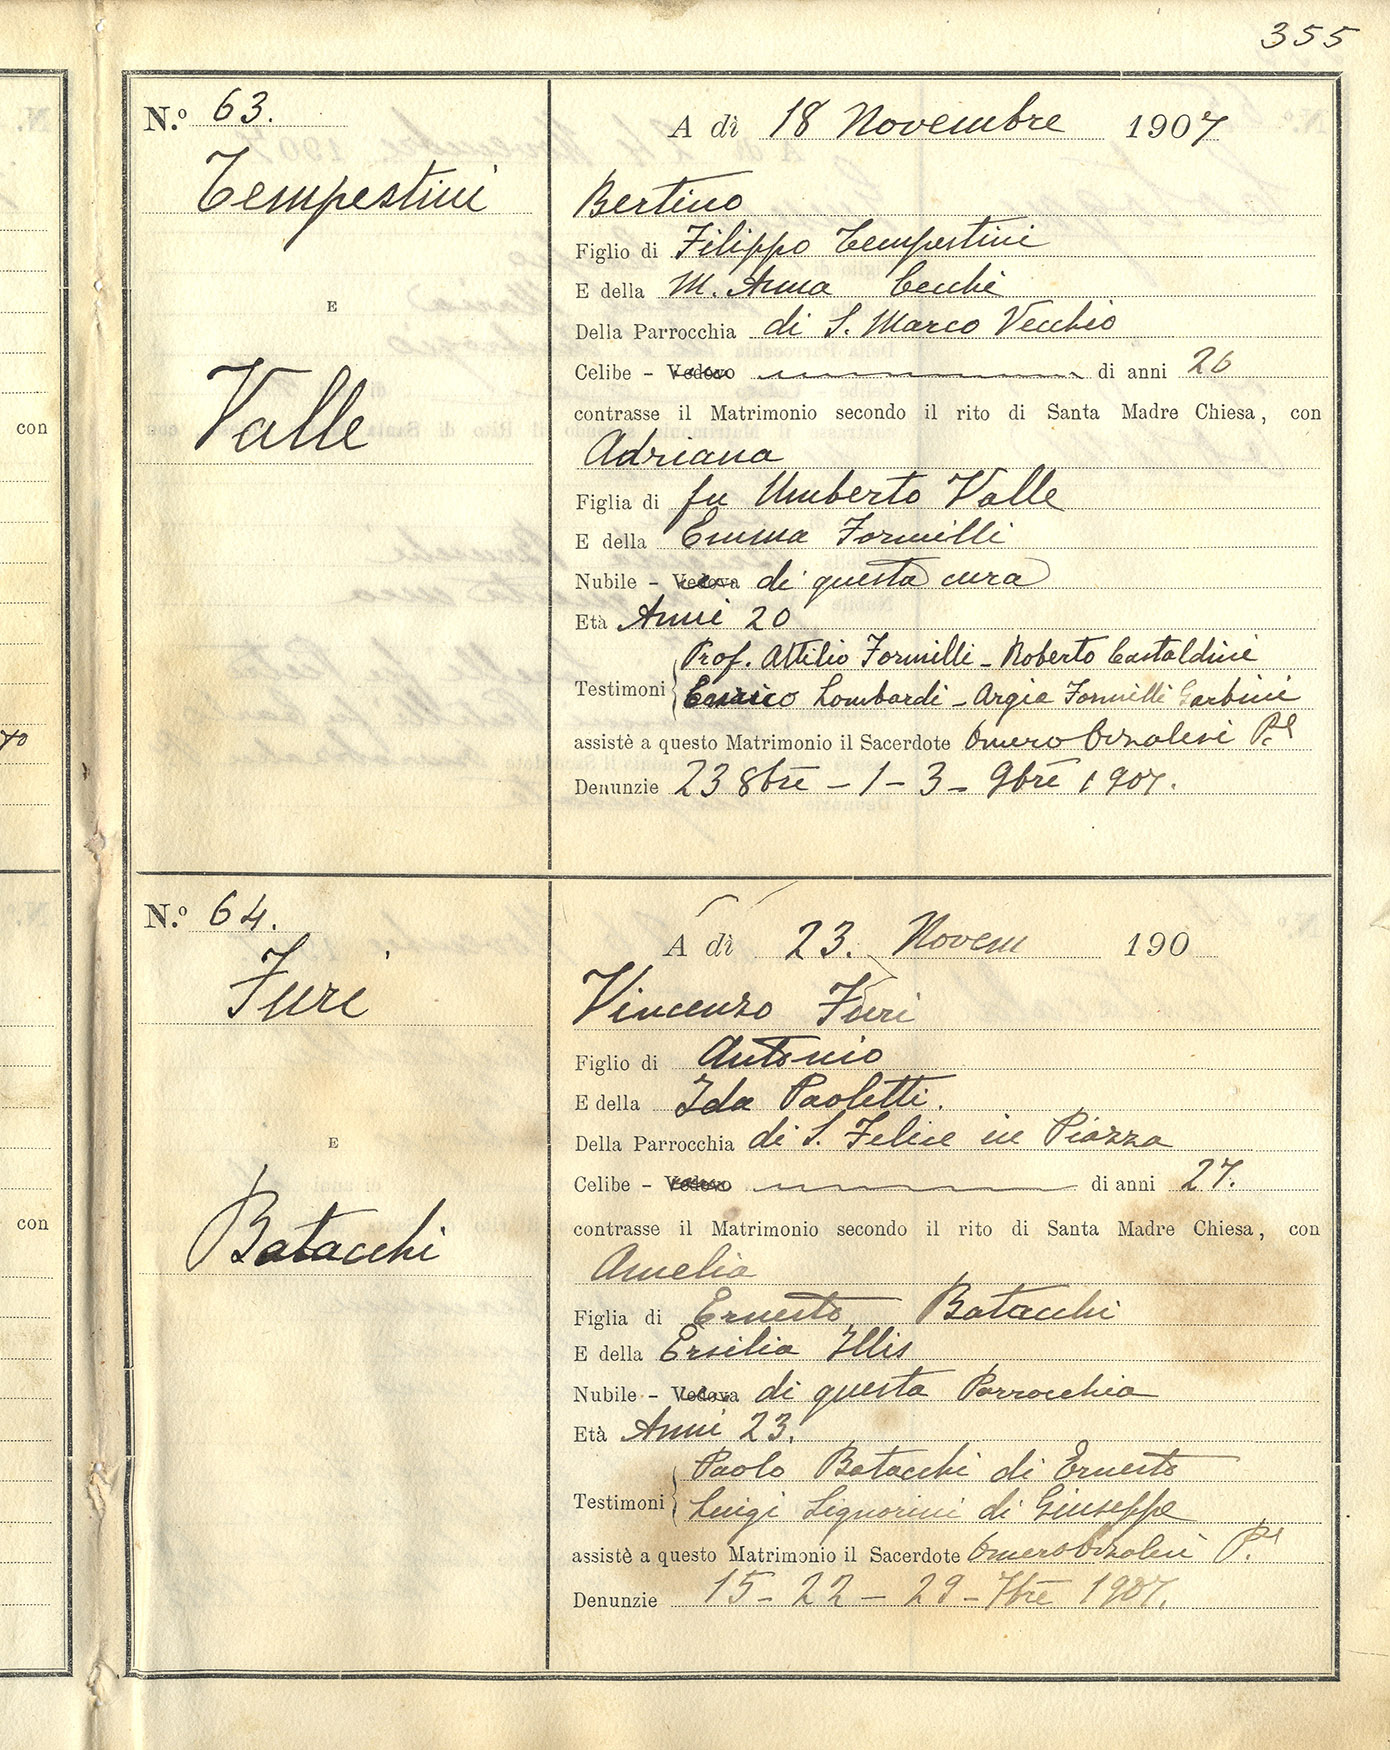 355
con
con
N.º 63.
Tempestini
E
Valle
A dì 18 Novembre 1907
Bertino
Figlio di Filippo Tempestini
E della M. Anna Cecchi
Della Parrocchia di S. Marco Vecchio
Celibe - Vedovo di anni 26
contrasse il Matrimonio secondo il rito di Santa Madre Chiesa, con
Adriana
Figlia di fu Umberto Valle
E della Emma Formilli
Nubile - Vedova di questa cura
Età Anni 20
Prof. Attilio Formilli - Roberto Castaldini
Testimoni Enrico Lombardi - Argia Formilli Garbini
assistè a questo Matrimonio il Sacerdote Omero Orzalesi
Denunzie 23 8bre - 1 - 3 - 9bre 1907.
N.º 64.
Furi
E
Batacchi
A dì 23. Novem 190
Vincenzo Furi
Figlio di Antonio
E della Ida Paoletti.
Della Parrocchia di S. Felice in Piazza
Celibe - Vedovo di anni 27.
contrasse il Matrimonio secondo il rito di Santa Madre Chiesa, con
Amelia
Figlia di Ernesto Batacchi
E della Ersilia Illis
Nubile - Vedova di questa Parrocchia
Età Anni 23.
Paolo Batacchi di Ernesto
Testimoni Luigi Signorini di Giuseppe
assistè a questo Matrimonio il Sacerdote Omero Orzalesi
Denunzie 15 - 22 - 29 - 7bre 1907.